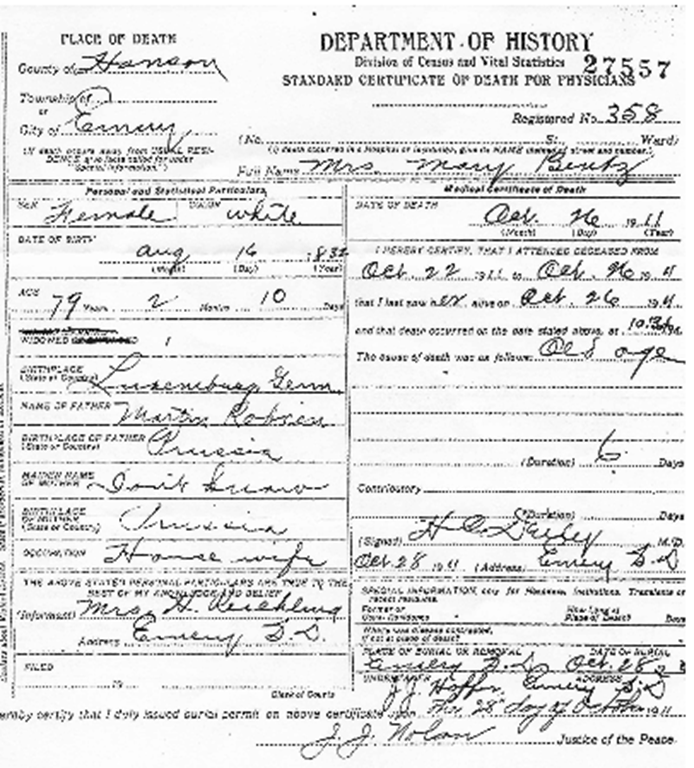 PLACE OF DEATH
County of Hanson
Township of
or
City of Emery
(If death occurs away from USUAL RESIDENCE give facts called for under "Special Information.")
DEPARTMENT OF HISTORY
Division of Census and Vital Statistics
27557
STANDARD CERTIFICATE OF DEATH FOR PHYSICIANS
Registered No. 358
(No. St. Ward)
Full Name Mrs. Mary Bentz
Personal and Statistical Particulars
SEX Female COLOR white
DATE OF BIRTH Aug 16 1832
(Month) (Day) (Year)
AGE 79 Years 2 Months 10 Days
WIDOWED
BIRTHPLACE (State or Country) Luxemburg Germ.
NAME OF FATHER Martin
BIRTHPLACE OF FATHER (State or Country) Prussia
MAIDEN NAME OF MOTHER
BIRTHPLACE OF MOTHER (State or Country) Prussia
OCCUPATION House wife
THE ABOVE STATED PERSONAL PARTICULARS ARE TRUE TO THE BEST OF MY KNOWLEDGE AND BELIEF
(Informant) Mrs. H.
Address Emery S.D.
FILED
19
Clerk of Courts
Medical Certificate of Death
DATE OF DEATH Oct. 26 1911
(Month) (Day) (Year)
I HEREBY CERTIFY, THAT I ATTENDED DECEASED FROM
Oct 22 1911 to Oct. 26 1911
that I last saw her alive on Oct 26 1911
and that death occurred on the date stated above, at
The cause of death was as follows: Old age
(Duration) 6 Days
Contributory
(Duration) Days
(Signed) H. M.D.
Oct. 28 1911 (Address) Emery S.D.
SPECIAL INFORMATION, only for Hospitals, Institutions, Transients or recent residents.
Former or Usual Residence How Long at Place of Death? Days
Where was disease contracted, if not at place of death?
PLACE OF BURIAL OR REMOVAL DATE OF BURIAL
Emery S.D. Oct. 28
UNDERTAKER ADDRESS
J.J. Emery S.D.
hereby certify that I duly issued burial permit on above certificate upon this 28 day of October 1911
J. J. Nolan Justice of the Peace.